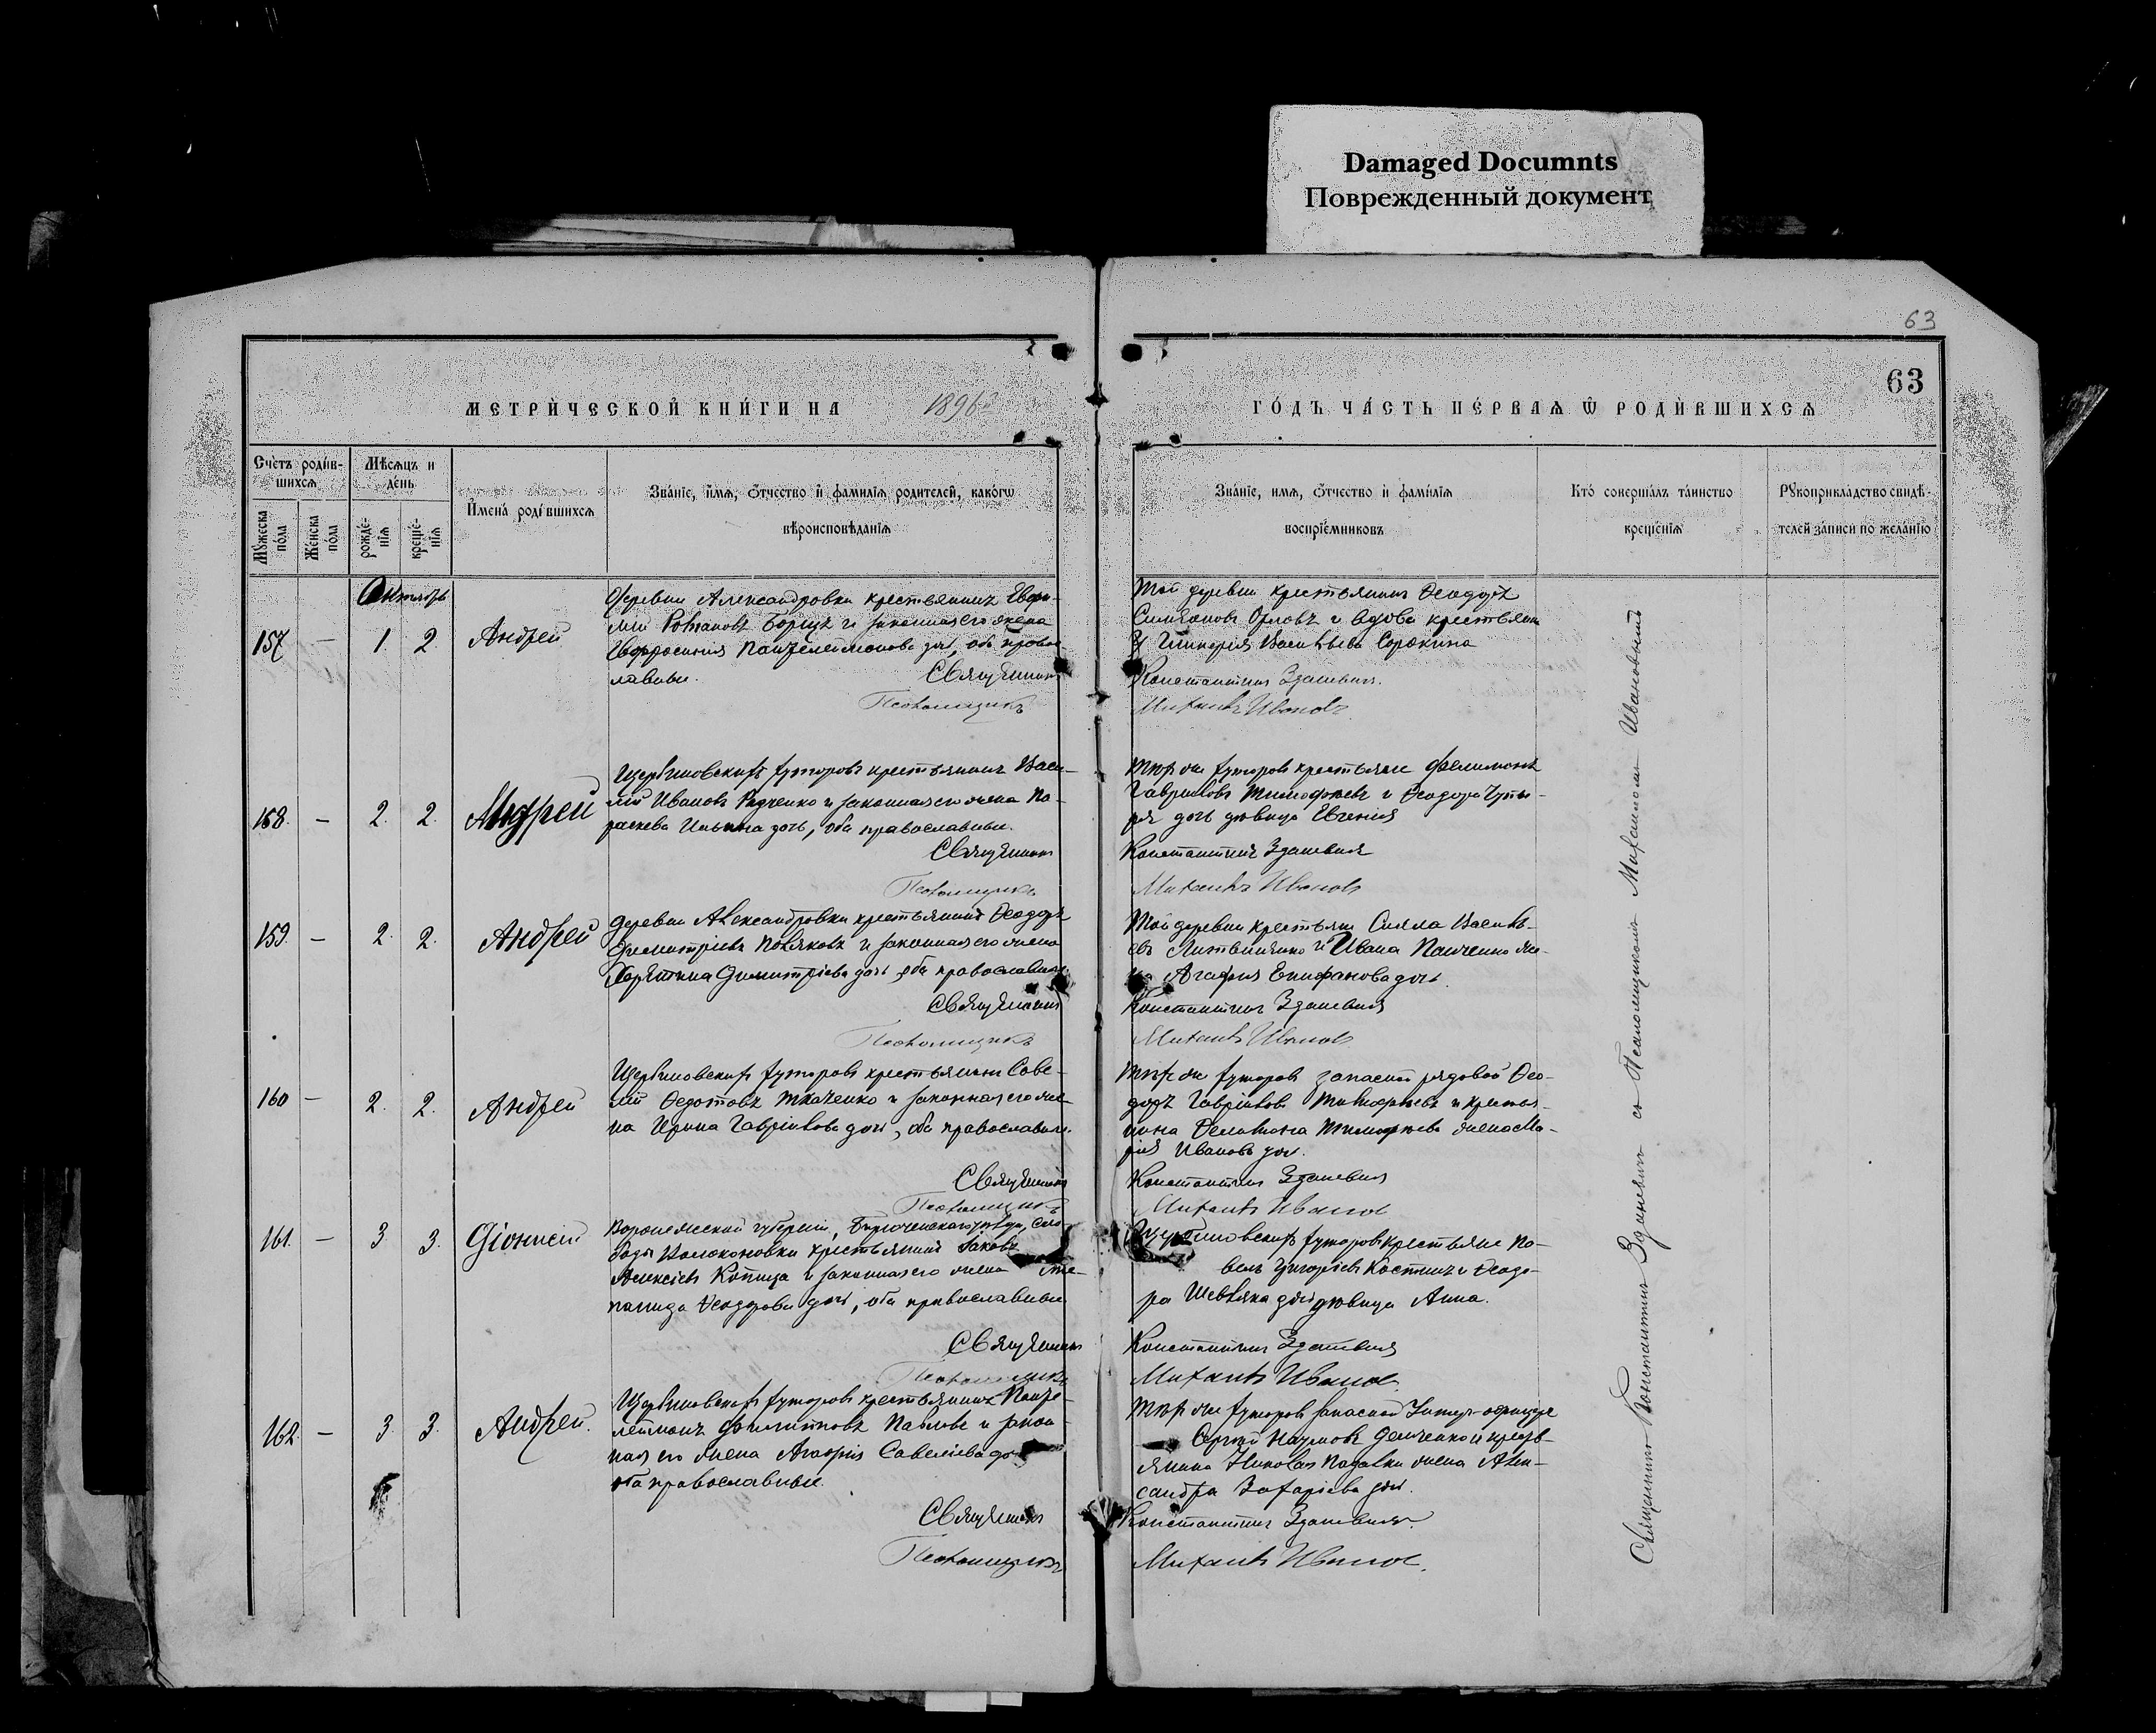 Damaged Documnts
Поврежденный документ
63
63
МЕТРИ́ЧЕСКОЙ КНИ́ГИ НА 1896
ГО́ДЪ ЧА́СТЬ ПЕ́РВАѦ Ѿ РОДИ́ВШИХСѦ
Счётъ роди́в-
шихсѧ
Мꙋ́жеска по́ла
Же́нска по́ла
Мѣ́сѧцъ и
де́нь
рожде́-
нїѧ
креще́-
нїѧ
И҆мена̀ роди́вшихсѧ
Зва́нїе, и҆́мѧ, ѻ҆́тчество и҆ фами́лїѧ роди́телей, како́гѡ
вѣроисповѣ́данїѧ
Зва́нїе, и҆мѧ, ѻ҆́тчество и҆ фами́лїѧ
воспрїе́мниковъ
Кто̀ соверша́лъ та́инство
креще́нїѧ
Рꙋкоприкла́дство свидѣ́-
телей за́писи по жела́нїю
Октябрь
157 – 1. 2. Андрей
Деревни Александровки крестьянинъ Евфи-
мій Романовъ Борщъ и законная его жена
Евфросинія Пантелеимонова дочь, оба правос-
лавные. Священникъ
Псаломщикъ
Той деревни крестьянинъ Ѳеодоръ
Орловъ и вдова крестьян
Гликерія Васильева Сорокина
Константинъ Зданевичъ.
Михаилъ Ивановъ
158. – 2. 2. Андрей
Щербиновскихъ хуторовъ крестьянинъ Васи-
лій Ивановъ Радченко и законная его жена Па-
раскева Ильина дочь, оба православные.
Священникъ
Псаломщикъ
Тѣхъ же хуторовъ крестьяне Филимонъ
Гавриловъ Тимофѣевъ и Ѳеодора
дочь дѣвица Евгенія
Константинъ Зданевичъ
Михаилъ Ивановъ
159. – 2. 2. Андрей
Деревни Александровки крестьянинъ Ѳеодоръ
Димитріевъ Поляковъ и законная его жена
Харитина Димитріева дочь, оба православные.
Священникъ
Псаломщикъ
Той деревни крестьяне Василь-
евъ Литвиненко и Ивана Панченко же-
на Агафія Епифанова дочь.
Константинъ Зданевичъ
Михаилъ Ивановъ
160 – 2. 2. Андрей
Щербиновскихъ хуторовъ крестьянинъ Саве-
лій Ѳедотовъ Ткаченко и законная его же-
на Ирина Гавріилова дочь, оба православные.
Священникъ
Псаломщикъ
Тѣхъ же хуторовъ запасной рядовой Ѳео-
доръ Гавріиловъ Тимофѣевъ и крестья-
нина Филимона Тимофѣева жена Ма-
рія Иванова дочь.
Константинъ Зданевичъ
Михаилъ Ивановъ
161. – 3 3. Діонисій
Воронежской губерніи, Бирюченскаго уѣзда, сло-
боды крестьянинъ Іаковъ
Алексіевъ Копица и законная его жена Сте-
панида Ѳеодорова дочь, оба православные
Священникъ
Псаломщикъ
Щербиновскихъ хуторовъ крестьяне Па-
велъ Григоріевъ Костинъ и Ѳеодо-
ра Шевляка дочь дѣвица Анна.
Константинъ Зданевичъ
Михаилъ Ивановъ
162. – 3. 3. Андрей.
Щербиновскихъ хуторовъ крестьянинъ Панте-
леимонъ Филипповъ Павловъ и закон-
ная его жена Агафія Савеліева дочь
оба православные.
Священникъ
Псаломщикъ
Тѣхъ же хуторовъ запасной Унтеръ-офицеръ
Сергій Наумовъ Демченко и кресть-
янина Николая жена Алек-
сандра Захаріева дочь.
Константинъ Зданевичъ.
Михаилъ Ивановъ.
Священникъ Константинъ Зданевичъ съ Псаломщикомъ Михаиломъ Ивановымъ